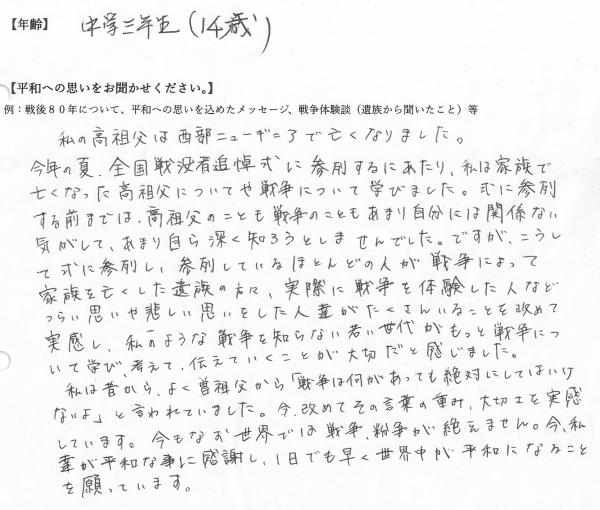 【年齢】 中学三年生(14歳)
【平和への思いをお聞かせください。】
例：戦後８０年について、平和への思いを込めたメッセージ、戦争体験談（遺族から聞いたこと）等
私の高祖父は西部ニューギニアで亡くなりました。
今年の夏、全国戦没者追悼式に参列するにあたり、私は家族で
亡くなった高祖父についてや戦争について学びました。式に参列
する前までは、高祖父のことも戦争のこともあまり自分には関係ない
気がして、あまり自ら深く知ろうとしませんでした。ですが、こうし
て式に参列し、参列しているほとんどの人が戦争によって
家族を亡くした遺族の方に、実際に戦争を体験した人など
つらい思いや悲しい思いをした人達がたくさんいることを改めて
実感し、私のような戦争を知らない若い世代がもっと戦争につ
いて学び、考えて、伝えていくことが大切だと感じました。
私は昔から、よく曽祖父から「戦争は何があっても絶対にしてはいけ
ないよ」と言われていました。今、改めてその言葉の重み、大切さを実感
しています。今もなお世界では戦争、紛争が絶えません。今、私
達が平和な事に感謝し、1日でも早く世界中が平和になること
を願っています。